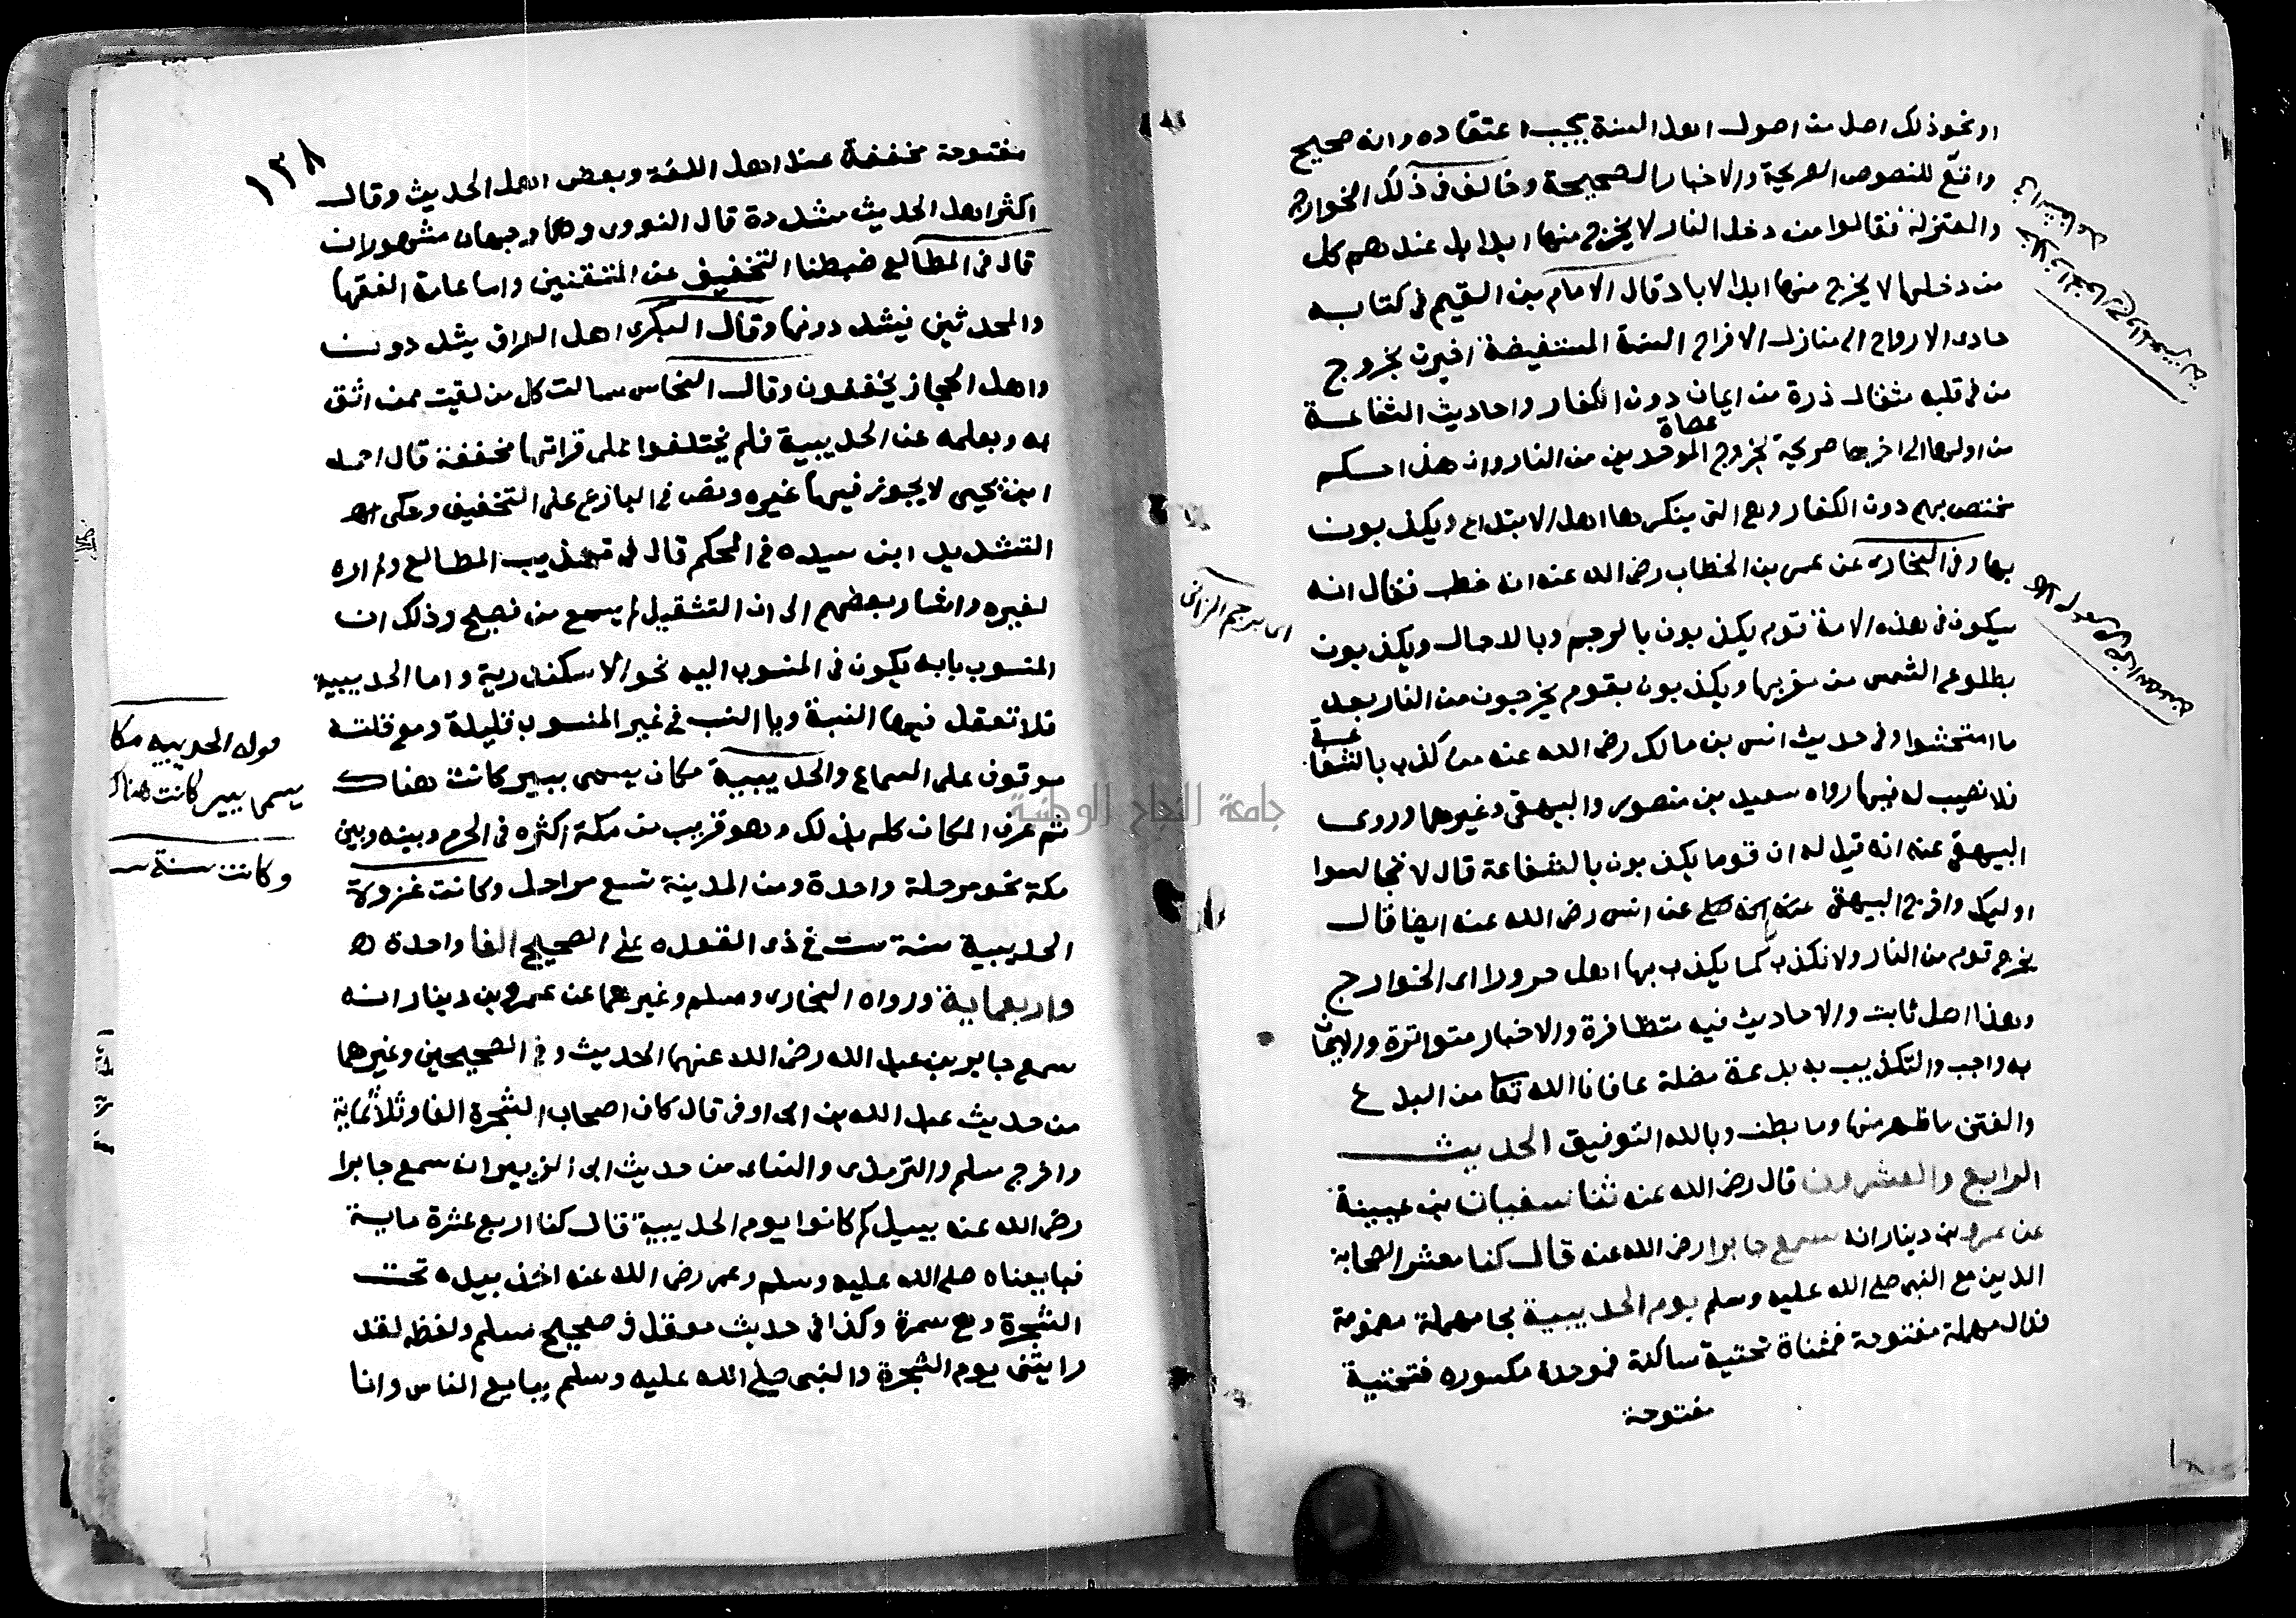 او نحو ذلك اصل من اصول اهل السنة يجب اعتقاده وانه صحيح
واقع للنصوص الصريحة والاخبار الصحيحة وخالف في ذلك الخوارج
والمعتزلة فقالوا من دخل النار لا يخرج منها ابدا بل عندهم كل
من دخلها لا يخرج منها ابد الاباد قال الامام بن القيم في كتابه
حادى الارواح الى منازل الافراح السنة المستفيضة اخبرت بخروج
من في قلبه مثقال ذرة من ايمان دون الكفار واحاديث الشفاعة
من اولها الى اخرها صريحة بخروج عصاة الموحدين من النار وان هذا حكم
مختص بهم دون الكفار وهي التي ينكرها اهل الابتداع ويكذبون
بها وفي البخارى عن عمر بن الخطاب رضى الله عنه انه خطب فقال انه
سيكون في هذه الامة قوم يكذبون بالرجم وبالدجال ويكذبون
بطلوع الشمس من مغربها ويكذبون بقوم يخرجون من النار بعد
ما امتحشوا وفي حديث انس بن مالك رضى الله عنه من كذب بالشفاعة
فلا نصيب له فيها رواه سعيد بن منصور والبيهقى وغيرهما وروى
البيهقي عنه انه قيل له ان قوما يكذبون بالشفاعة قال لا تجالسوا
اوليك واخرج البيهقي عن انس رضى الله عنه ايضا قال
يخرج قوم من النار ولا نكذب كما يكذب بها اهل حرورا اى الخوارج
وهذا اصل ثابت والاحاديث فيه متظافرة والاخبار متواترة والايمان
به واجب والتكذيب به بدعة مضلة عافانا الله تعا من البدع
والفتن ما ظهر منها وما بطن وبالله التوفيق الحديث
الرابع والعشرون قال رضى الله عنه ثنا سفيان بن عيينة
عن عمرو بن دينار انه سمع جابرا رضى الله عنه قال كنا معشر الصحابة
الذين مع النبى صلى الله عليه وسلم يوم الحديبية بحا مهملة مضمومة
فدال مهملة مفتوحة فمثناة تحتية ساكنة فموحدة مكسوره فتحتية
مفتوحة
١٣٨
مفتوحة مخففة عند اهل اللغة وبعض اهل الحديث وقال
اكثر اهل الحديث مشددة قال النووى وهما وجهان مشهوران
قال في المطالع ضبطنا التخفيف عن المتقنين واما عامة الفقها
والمحدثين فيشددونها وقال البكرى اهل العراق يشددون
واهل الحجاز يخففون وقال النحاس سالت كل من لقيت ممن اثق
به وبعلمه عن الحديبية فلم يختلفوا على قراتها مخففة قال احمد
ابن يحيى لا يجوز فيها غيره ونص في البارع على التخفيف وحكى
التشديد ابن سيده في المحكم قال في تهذيب المطالع ولم اره
لغيره واشار بعضهم الى ان التثقيل لم يسمع من فصيح وذلك ان
المنسوب بابه يكون في المنسوب اليه نحو الاسكندرية واما الحديبية
فلا تعقل فيها النسبة ويا النسب في غير المنسوب قليلة ومع قلته
موقوف على السماع والحديبية مكان يسمى ببير كانت هناك
ثم عرف المكان كله بذلك وهو قريب من مكة اكثره في الحرم وبينه وبين
مكة نحو مرحلة واحدة ومن المدينة تسع مراحل وكانت غزوة
الحديبية سنة ست في ذى القعده على الصحيح الفا واحدة
واربعماية ورواه البخارى ومسلم وغيرهما عن عمرو بن دينار انه
سمع جابر بن عبد الله رضى الله عنهما الحديث وفي الصحيحين وغيرهما
من حديث عبد الله بن ابى اوفى قال كان اصحاب الشجرة الفا وثلاثماية
واخرج مسلم والترمذى والنساى من حديث ابى الزبير انه سمع جابرا
رضى الله عنه يسيل كم كانوا يوم الحديبية قال كنا اربع عشرة ماية
فبايعناه صلى الله عليه وسلم وعمر رضى الله عنه اخذ بيده تحت
الشجرة وهي سمرة وكذا في حديث معقل في صحيح مسلم ولفظه لقد
رايتنى يوم الشجرة والنبى صلى الله عليه وسلم يبايع الناس وانا
قوله الحديبيه مكا
يسمى ببير كانت هناك
وكانت سنة
جامعة النجاح الوطنية